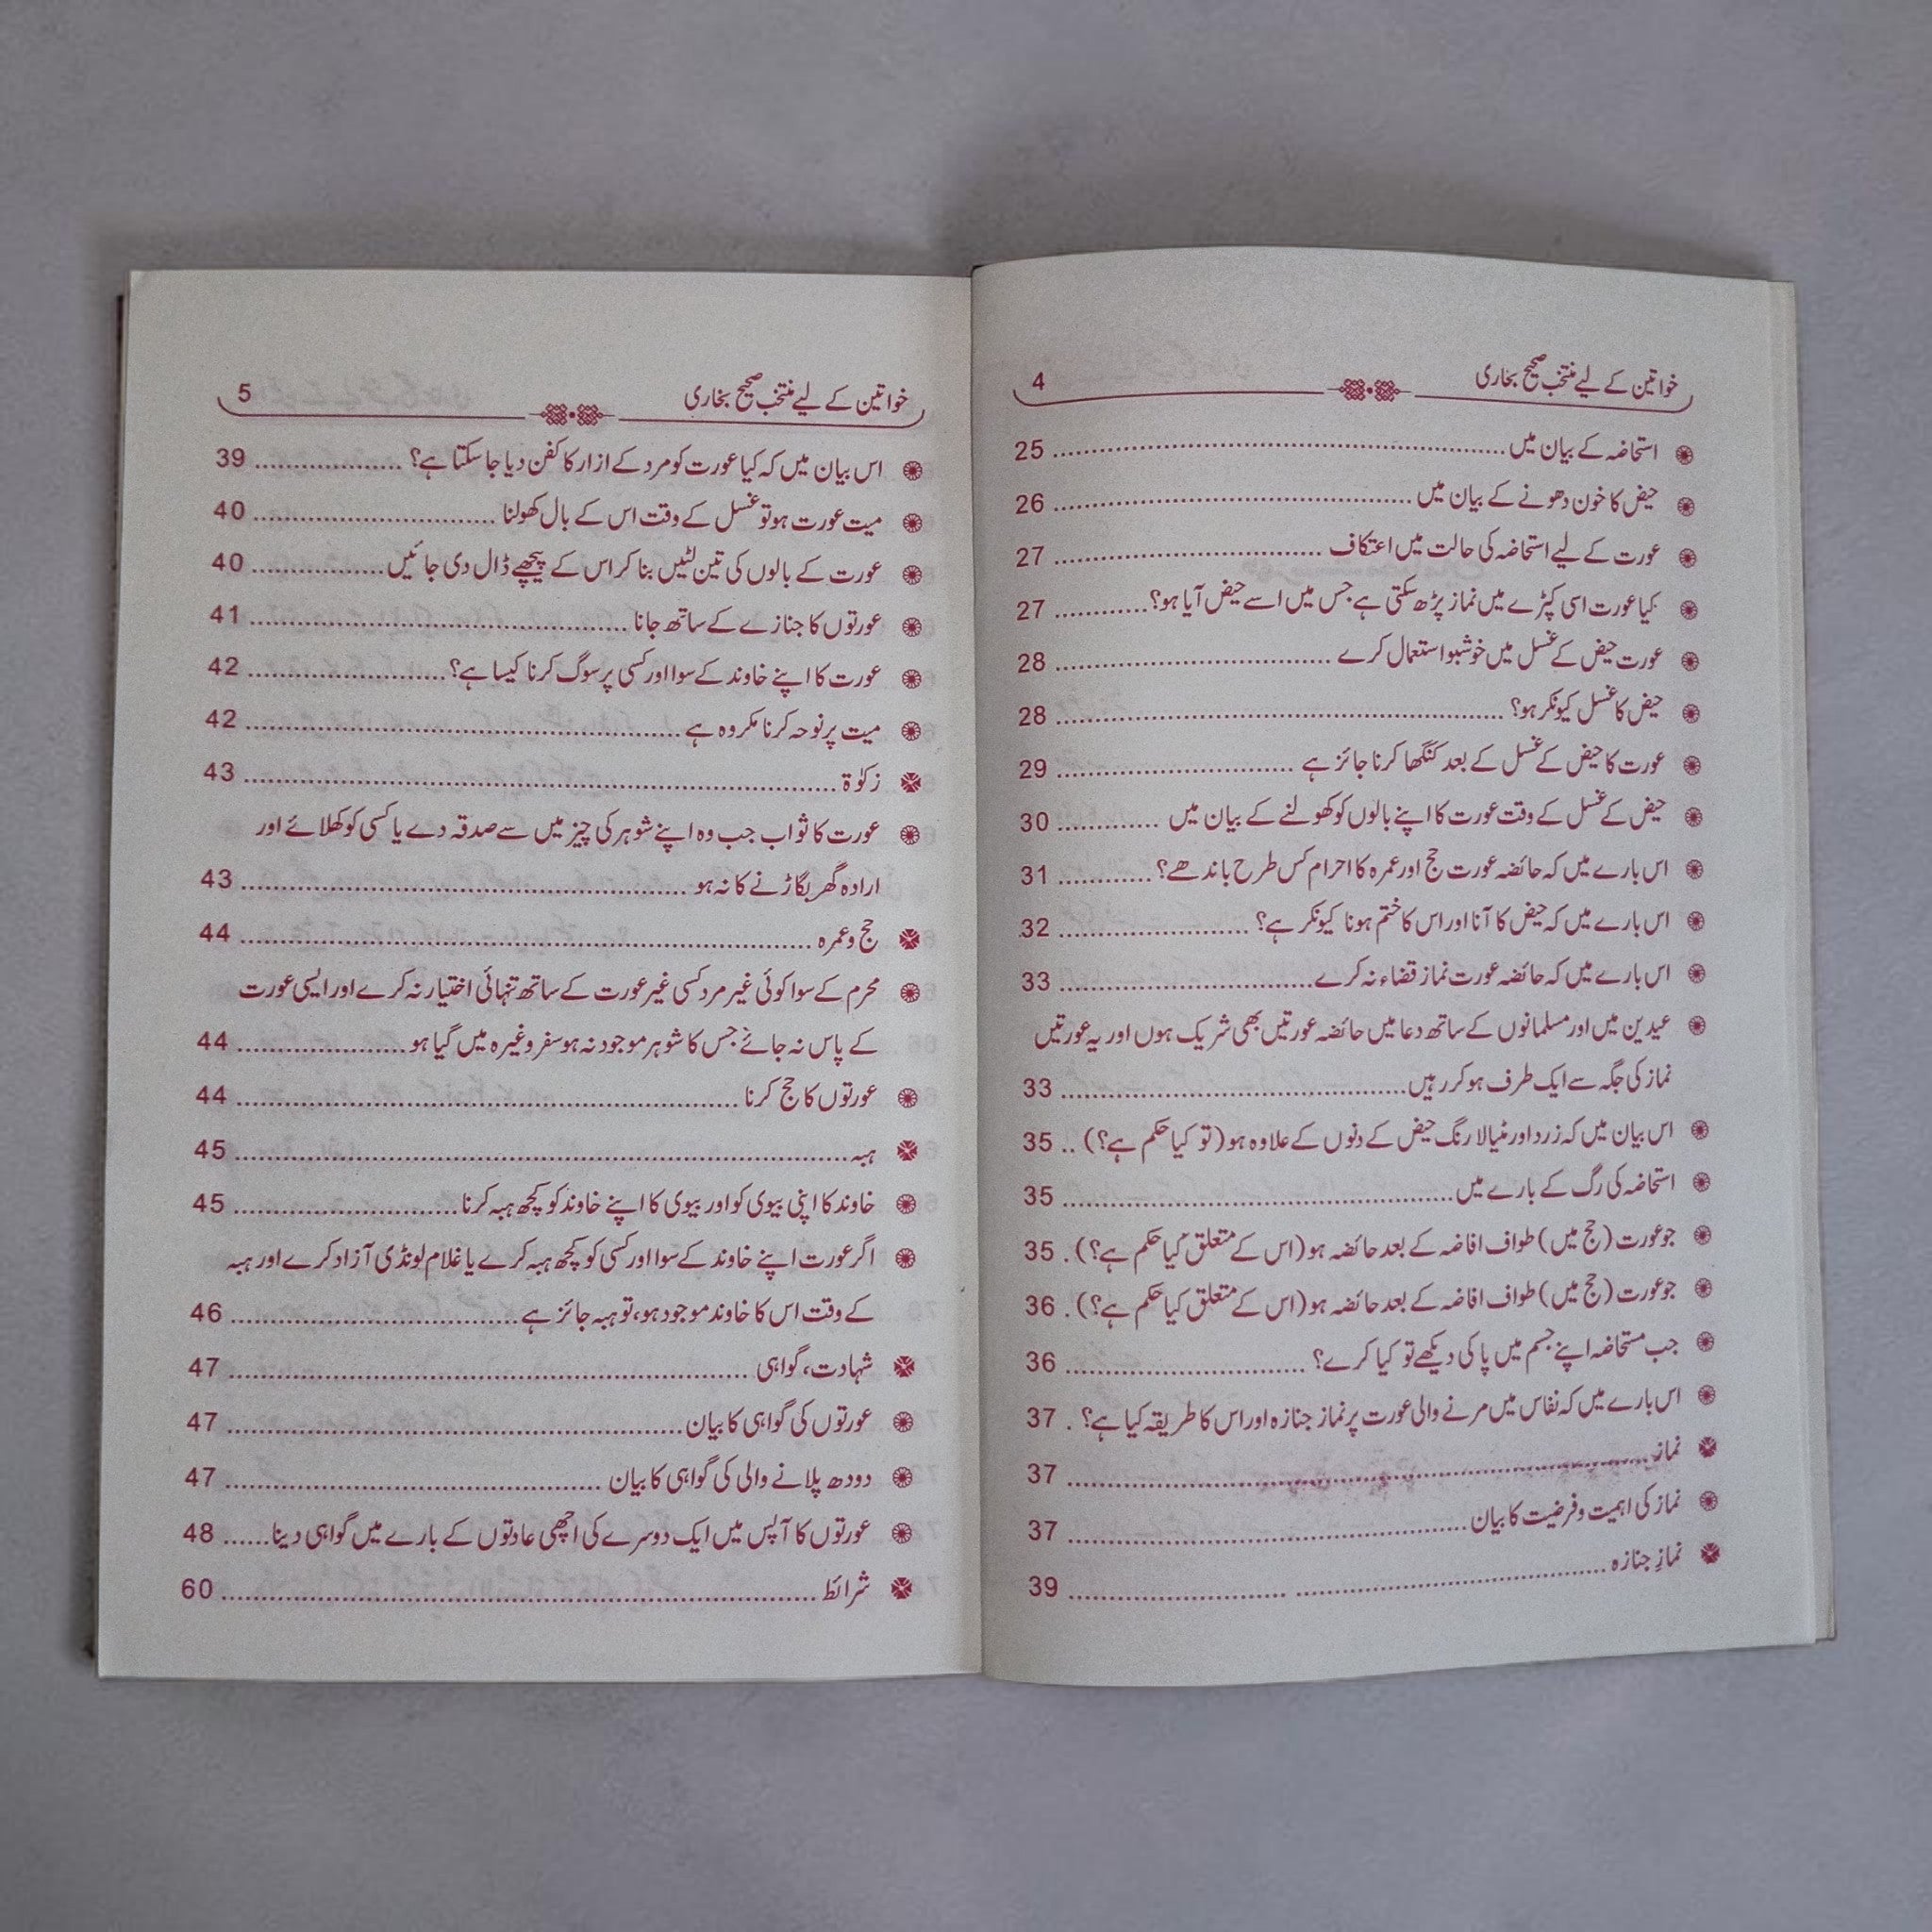 خواتین کے لیے منتخب صحیح بخاری 4
استحاضہ کے بیان میں 25
حیض کا خون دھونے کے بیان میں 26
عورت کے لیے استحاضہ کی حالت میں اعتکاف 27
کیا عورت اسی کپڑے میں نماز پڑھ سکتی ہے جس میں اسے حیض آیا ہو؟ 27
عورت حیض کے غسل میں خوشبو استعمال کرے 28
حیض کا غسل کیونکر ہو؟ 28
عورت کا حیض کے غسل کے بعد کنگھا کرنا جائز ہے 29
حیض کے غسل کے وقت عورت کا اپنے بالوں کو کھولنے کے بیان میں 30
اس بارے میں کہ حائضہ عورت حج اور عمرہ کا احرام کس طرح باندھے؟ 31
اس بارے میں کہ حیض کا آنا اور اس کا ختم ہونا کیونکر ہے؟ 32
اس بارے میں کہ حائضہ عورت نماز قضاء نہ کرے 33
عیدین میں اور مسلمانوں کے ساتھ دعا میں حائضہ عورتیں بھی شریک ہوں اور یہ عورتیں
نماز کی جگہ سے ایک طرف ہو کر رہیں 33
اس بیان میں کہ زرد اور مٹیالا رنگ حیض کے دنوں کے علاوہ ہو (تو کیا حکم ہے؟) 35
استحاضہ کی رگ کے بارے میں 35
جو عورت (حج میں) طواف افاضہ کے بعد حائضہ ہو (اس کے متعلق کیا حکم ہے؟) 35
جو عورت (حج میں) طواف افاضہ کے بعد حائضہ ہو (اس کے متعلق کیا حکم ہے؟) 36
جب مستحاضہ اپنے جسم میں پاکی دیکھے تو کیا کرے؟ 36
اس بارے میں کہ نفاس میں مرنے والی عورت پر نماز جنازہ اور اس کا طریقہ کیا ہے؟ 37
نماز 37
نماز کی اہمیت و فرضیت کا بیان 37
نمازِ جنازہ 39
خواتین کے لیے منتخب صحیح بخاری 5
اس بیان میں کہ کیا عورت کو مرد کے ازار کا کفن دیا جا سکتا ہے؟ 39
میت عورت ہو تو غسل کے وقت اس کے بال کھولنا 40
عورت کے بالوں کی تین لٹیں بنا کر اس کے پیچھے ڈال دی جائیں 40
عورتوں کا جنازے کے ساتھ جانا 41
عورت کا اپنے خاوند کے سوا اور کسی پر سوگ کرنا کیسا ہے؟ 42
میت پر نوحہ کرنا مکروہ ہے 42
زکوٰۃ 43
عورت کا ثواب جب وہ اپنے شوہر کی چیز میں سے صدقہ دے یا کسی کو کھلائے اور
ارادہ گھر بگاڑنے کا نہ ہو 43
حج و عمرہ 44
محرم کے سوا کوئی غیر مرد کسی غیر عورت کے ساتھ تنہائی اختیار نہ کرے اور ایسی عورت
کے پاس نہ جائے جس کا شوہر موجود نہ ہو سفر وغیرہ میں گیا ہو 44
عورتوں کا حج کرنا 44
ہبہ 45
خاوند کا اپنی بیوی کو اور بیوی کا اپنے خاوند کو کچھ ہبہ کرنا 45
اگر عورت اپنے خاوند کے سوا اور کسی کو کچھ ہبہ کرے یا غلام لونڈی آزاد کرے اور ہبہ
کے وقت اس کا خاوند موجود ہو، تو ہبہ جائز ہے 46
شہادت، گواہی 47
عورتوں کی گواہی کا بیان 47
دودھ پلانے والی کی گواہی کا بیان 47
عورتوں کا آپس میں ایک دوسرے کی اچھی عادتوں کے بارے میں گواہی دینا 48
شرائط 60